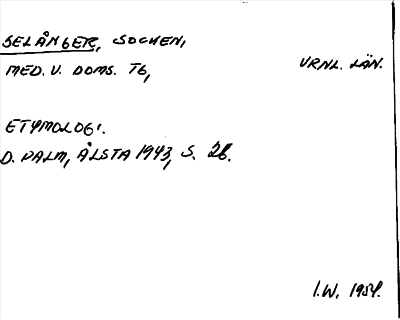 SELÅNGER, SOCKEN,
MED. V. DOMS. TG, VRNL. LÄN.
ETYMOLOGI.
D. PALM, ÅLSTA 1943, S. 28.
I.W. 1954.